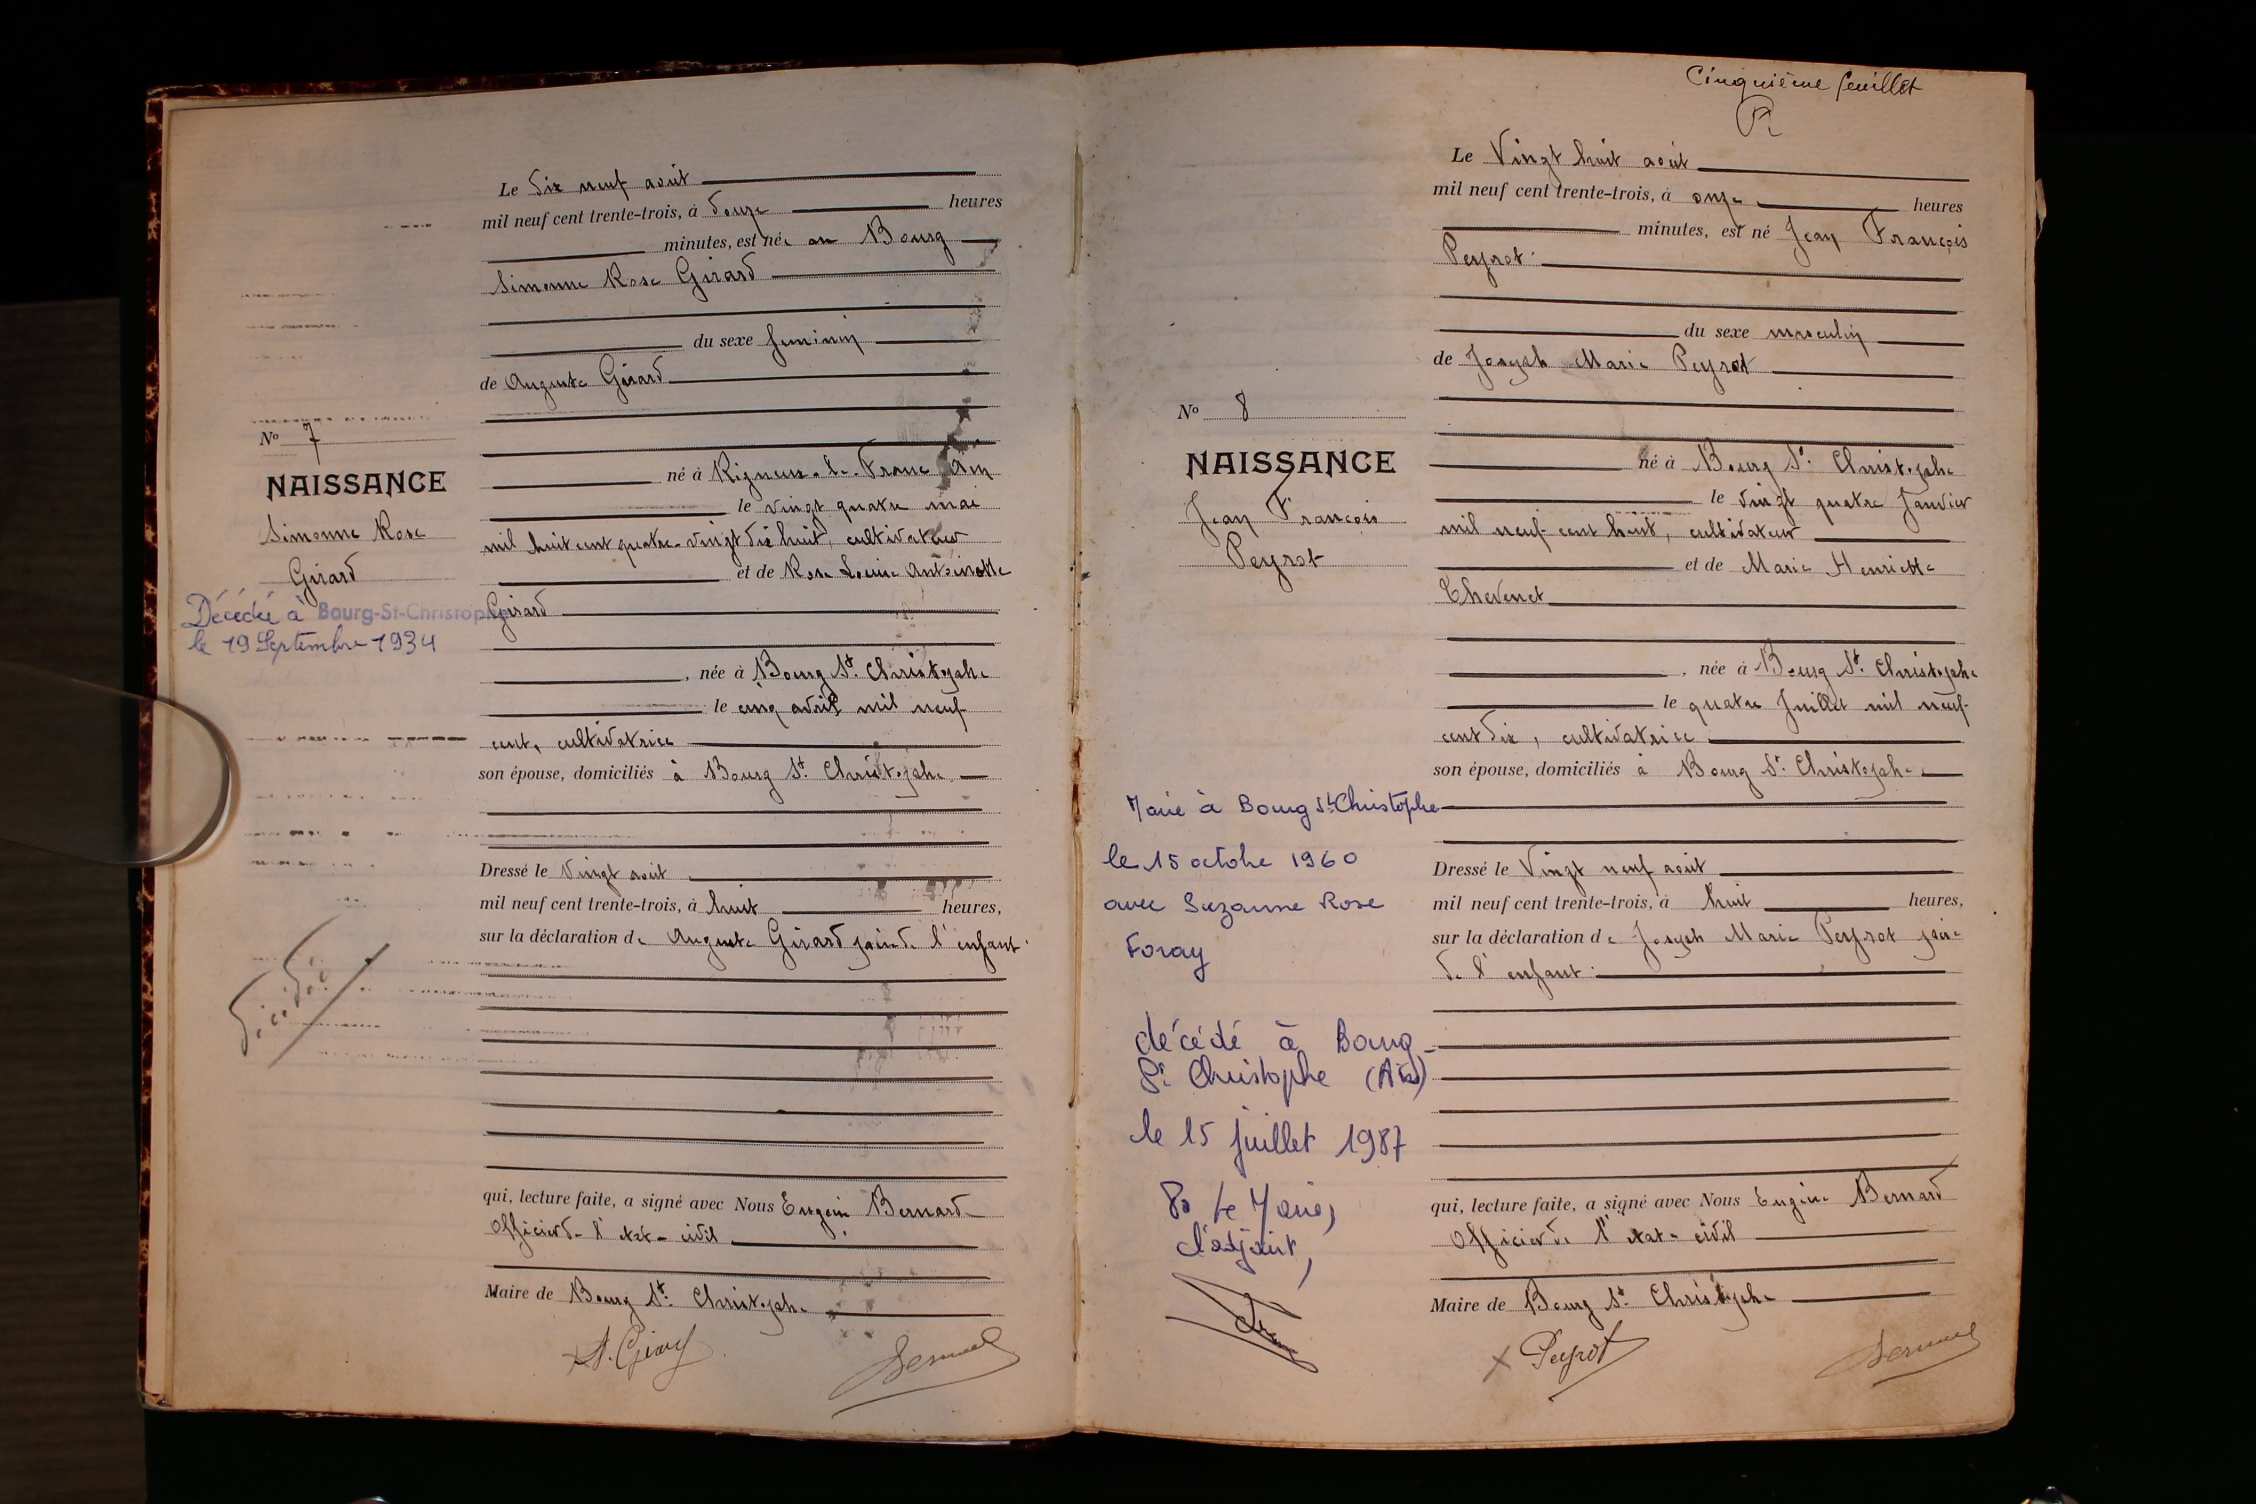 Le dix neuf août
mil neuf cent trente-trois, à douze heures
minutes, est née au Bourg
Simonne Rose Girard
du sexe feminin
de Auguste Girard
né à Rigneux-le-Franc Ain
le vingt quatre mai
mil huit cent quatre-vingt dix huit, cultivateur
et de Rose Louise Antoinette
Girard
, née à Bourg St. Christophe
le cinq avril mil neuf
cent, cultivatrice
son épouse, domiciliés à Bourg St. Christophe
Dressé le Vingt août
mil neuf cent trente-trois, à huit heures,
sur la déclaration de Auguste Girard père de l'enfant.
qui, lecture faite, a signé avec Nous Eugène Bernard
Officier de l'état-civil
Maire de Bourg St. Christophe
A. Girard
Bernard
No 7
NAISSANCE
Simonne Rose
Girard
Décédée à Bourg-St-Christophe
le 19 Septembre 1934
Décédée
Cinquième feuillet
Le Vingt huit août
mil neuf cent trente-trois, à onze heures
minutes, est né Jean François
Peyrot.
du sexe masculin
de Joseph Marie Peyrot
né à Bourg St. Christophe
le vingt quatre Janvier
mil neuf cent huit, cultivateur
et de Marie Henriette
Thevenet
, née à Bourg St. Christophe
le quatre Juillet mil neuf-
cent dix, cultivatrice
son épouse, domiciliés à Bourg St. Christophe
Dressé le Vingt neuf août
mil neuf cent trente-trois, à huit heures,
sur la déclaration de Joseph Marie Peyrot père
de l'enfant.
qui, lecture faite, a signé avec Nous Eugène Bernard
Officier de l'état-civil
Maire de Bourg St. Christophe
Peyrot
Bernard
No 8
NAISSANCE
Jean François
Peyrot
Marié à Bourg St-Christophe
le 15 octobre 1960
avec Suzanne Rose
Foray
décédé à Bourg-
St Christophe (Ain)
le 15 juillet 1987
Po Le Maire,
l'adjoint,